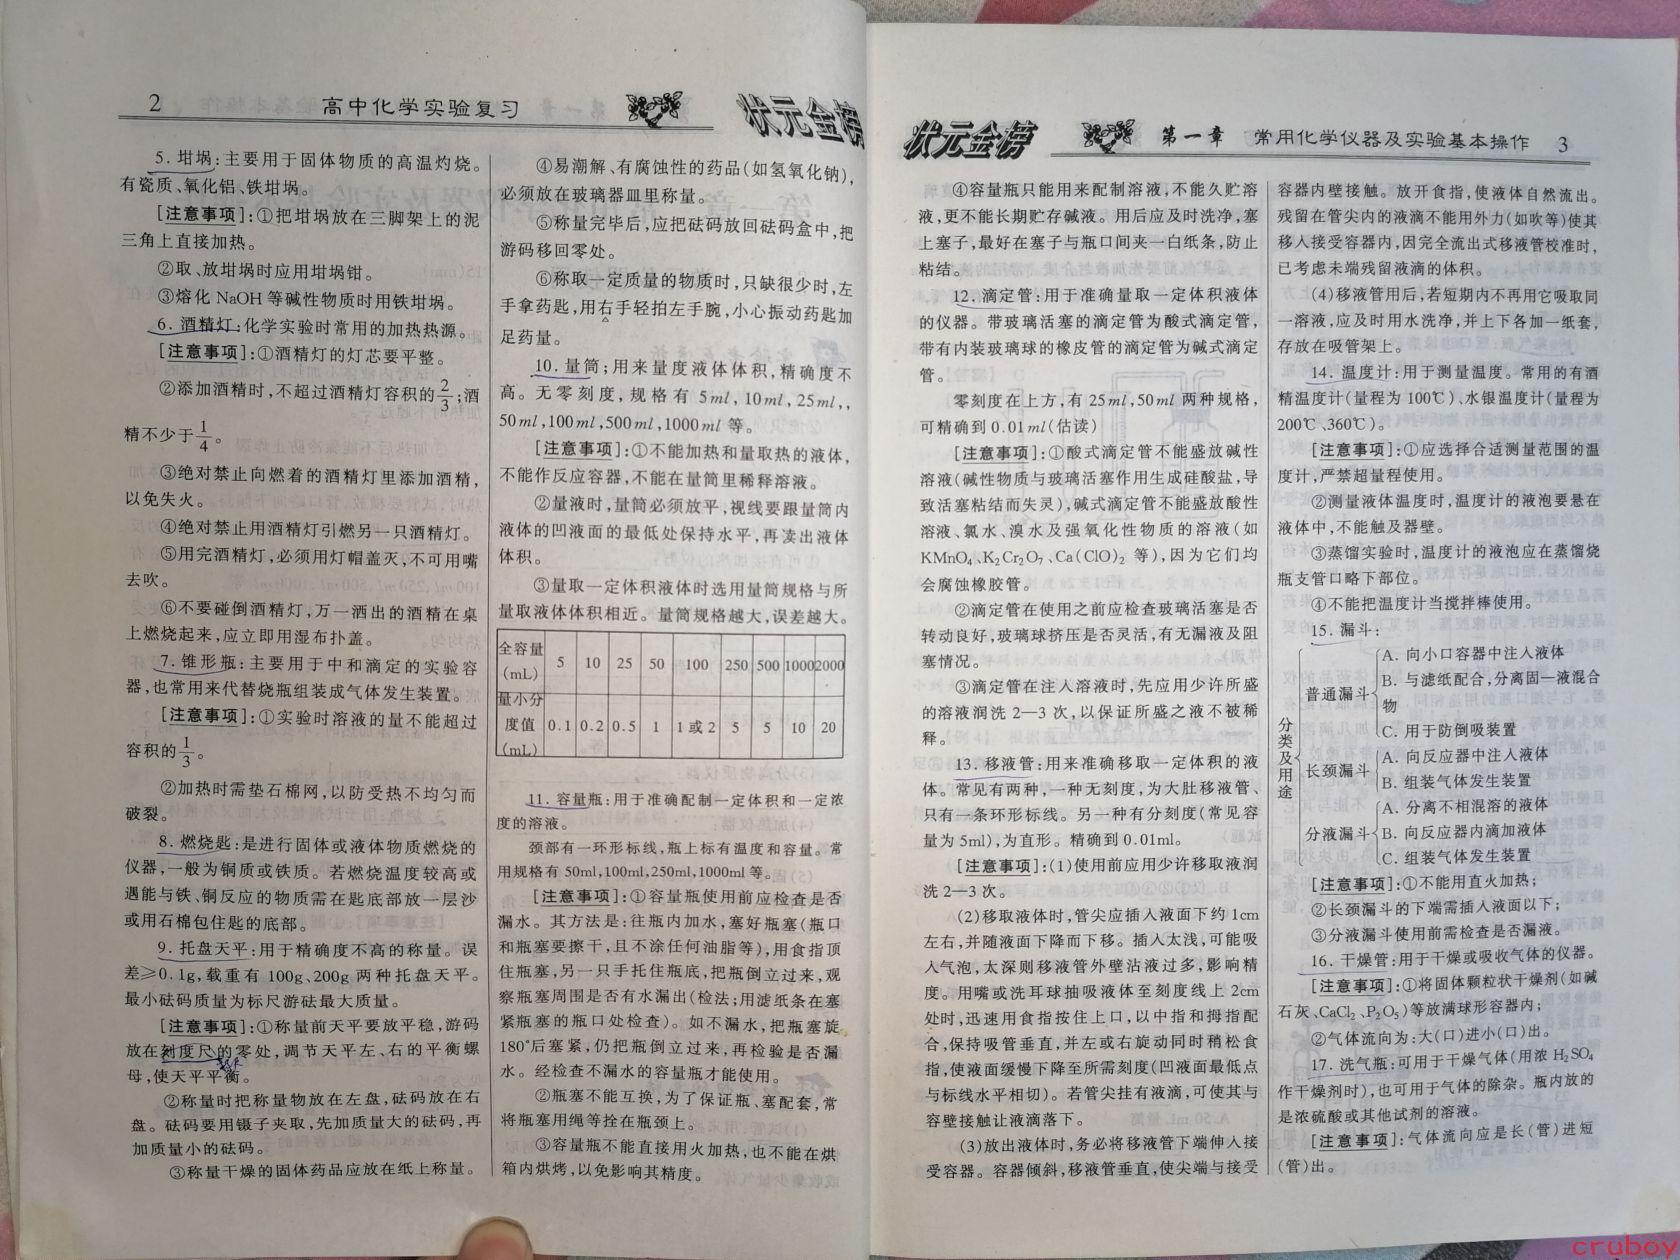 2 高中化学实验复习 状元金榜
5. 坩埚:主要用于固体物质的高温灼烧。
有瓷质、氧化铝、铁坩埚。
[注意事项]:①把坩埚放在三脚架上的泥
三角上直接加热。
②取、放坩埚时应用坩埚钳。
③熔化 NaOH 等碱性物质时用铁坩埚。
6. 酒精灯:化学实验时常用的加热热源。
[注意事项]:①酒精灯的灯芯要平整。
②添加酒精时,不超过酒精灯容积的2/3;酒
精不少于1/4。
③绝对禁止向燃着的酒精灯里添加酒精,
以免失火。
④绝对禁止用酒精灯引燃另一只酒精灯。
⑤用完酒精灯,必须用灯帽盖灭,不可用嘴
去吹。
⑥不要碰倒酒精灯,万一洒出的酒精在桌
上燃烧起来,应立即用湿布扑盖。
7. 锥形瓶:主要用于中和滴定的实验容
器,也常用来代替烧瓶组装成气体发生装置。
[注意事项]:①实验时溶液的量不能超过
容积的1/3。
②加热时需垫石棉网,以防受热不均匀而
破裂。
8. 燃烧匙:是进行固体或液体物质燃烧的
仪器,一般为铜质或铁质。若燃烧温度较高或
遇能与铁、铜反应的物质需在匙底部放一层沙
或用石棉包住匙的底部。
9. 托盘天平:用于精确度不高的称量。误
差≥0.1g,载重有 100g、200g 两种托盘天平。
最小砝码质量为标尺游砝最大质量。
[注意事项]:①称量前天平要放平稳,游码
放在刻度尺的零处,调节天平左、右的平衡螺
母,使天平平衡。
②称量时把称量物放在左盘,砝码放在右
盘。砝码要用镊子夹取,先加质量大的砝码,再
加质量小的砝码。
③称量干燥的固体药品应放在纸上称量。
④易潮解、有腐蚀性的药品(如氢氧化钠),
必须放在玻璃器皿里称量。
⑤称量完毕后,应把砝码放回砝码盒中,把
游码移回零处。
⑥称取一定质量的物质时,只缺很少时,左
手拿药匙,用右手轻拍左手腕,小心振动药匙加
足药量。
10. 量筒;用来量度液体体积,精确度不
高。无零刻度,规格有 5ml,10ml,25ml,,
50ml,100ml,500ml,1000ml 等。
[注意事项]:①不能加热和量取热的液体,
不能作反应容器,不能在量筒里稀释溶液。
②量液时,量筒必须放平,视线要跟量筒内
液体的凹液面的最低处保持水平,再读出液体
体积。
③量取一定体积液体时选用量筒规格与所
量取液体体积相近。量筒规格越大,误差越大。
全容量(mL) 5 10 25 50 100 250 500 1000 2000
量小分度值(mL) 0.1 0.2 0.5 1 1 或 2 5 5 10 20
11. 容量瓶:用于准确配制一定体积和一定浓
度的溶液。
颈部有一环形标线,瓶上标有温度和容量。常
用规格有 50ml,100ml,250ml,1000ml 等。
[注意事项]:①容量瓶使用前应检查是否
漏水。其方法是:往瓶内加水,塞好瓶塞(瓶口
和瓶塞要擦干,且不涂任何油脂等),用食指顶
住瓶塞,另一只手托住瓶底,把瓶倒立过来,观
察瓶塞周围是否有水漏出(检法;用滤纸条在塞
紧瓶塞的瓶口处检查)。如不漏水,把瓶塞旋
180°后塞紧,仍把瓶倒立过来,再检验是否漏
水。经检查不漏水的容量瓶才能使用。
②瓶塞不能互换,为了保证瓶、塞配套,常
将瓶塞用绳等拴在瓶颈上。
③容量瓶不能直接用火加热,也不能在烘
箱内烘烤,以免影响其精度。
状元金榜 第一章 常用化学仪器及实验基本操作 3
④容量瓶只能用来配制溶液,不能久贮溶
液,更不能长期贮存碱液。用后应及时洗净,塞
上塞子,最好在塞子与瓶口间夹一白纸条,防止
粘结。
12. 滴定管:用于准确量取一定体积液体
的仪器。带玻璃活塞的滴定管为酸式滴定管,
带有内装玻璃球的橡皮管的滴定管为碱式滴定
管。
零刻度在上方,有 25ml,50ml 两种规格,
可精确到 0.01ml(估读)
[注意事项]:①酸式滴定管不能盛放碱性
溶液(碱性物质与玻璃活塞作用生成硅酸盐,导
致活塞粘结而失灵),碱式滴定管不能盛放酸性
溶液、氯水、溴水及强氧化性物质的溶液(如
KMnO₄、K₂Cr₂O₇、Ca(ClO)₂ 等),因为它们均
会腐蚀橡胶管。
②滴定管在使用之前应检查玻璃活塞是否
转动良好,玻璃球挤压是否灵活,有无漏液及阻
塞情况。
③滴定管在注入溶液时,先应用少许所盛
的溶液润洗 2—3 次,以保证所盛之液不被稀
释。
13. 移液管:用来准确移取一定体积的液
体。常见有两种,一种无刻度,为大肚移液管、
只有一条环形标线。另一种有分刻度(常见容
量为 5ml),为直形。精确到 0.01ml。
[注意事项]:(1)使用前应用少许移取液润
洗 2—3 次。
(2)移取液体时,管尖应插入液面下约 1cm
左右,并随液面下降而下移。插入太浅,可能吸
入气泡,太深则移液管外壁沾液过多,影响精
度。用嘴或洗耳球抽吸液体至刻度线上 2cm
处时,迅速用食指按住上口,以中指和拇指配
合,保持吸管垂直,并左或右旋动同时稍松食
指,使液面缓慢下降至所需刻度(凹液面最低点
与标线水平相切)。若管尖挂有液滴,可使其与
容壁接触让液滴落下。
(3)放出液体时,务必将移液管下端伸入接
受容器。容器倾斜,移液管垂直,使尖端与接受
容器内壁接触。放开食指,使液体自然流出。
残留在管尖内的液滴不能用外力(如吹等)使其
移入接受容器内,因完全流出式移液管校准时,
已考虑末端残留液滴的体积。
(4)移液管用后,若短期内不再用它吸取同
一溶液,应及时用水洗净,并上下各加一纸套,
存放在吸管架上。
14. 温度计:用于测量温度。常用的有酒
精温度计(量程为 100℃)、水银温度计(量程为
200℃、360℃)。
[注意事项]:①应选择合适测量范围的温
度计,严禁超量程使用。
②测量液体温度时,温度计的液泡要悬在
液体中,不能触及器壁。
③蒸馏实验时,温度计的液泡应在蒸馏烧
瓶支管口略下部位。
④不能把温度计当搅拌棒使用。
15. 漏斗:
分类及用途
普通漏斗
A. 向小口容器中注入液体
B. 与滤纸配合,分离固—液混合
物
C. 用于防倒吸装置
长颈漏斗
A. 向反应器中注入液体
B. 组装气体发生装置
分液漏斗
A. 分离不相混溶的液体
B. 向反应器内滴加液体
C. 组装气体发生装置
[注意事项]:①不能用直火加热;
②长颈漏斗的下端需插入液面以下;
③分液漏斗使用前需检查是否漏液。
16. 干燥管:用于干燥或吸收气体的仪器。
[注意事项]:①将固体颗粒状干燥剂(如碱
石灰、CaCl₂、P₂O₅)等放满球形容器内;
②气体流向为:大(口)进小(口)出。
17. 洗气瓶:可用于干燥气体(用浓 H₂SO₄
作干燥剂时),也可用于气体的除杂。瓶内放的
是浓硫酸或其他试剂的溶液。
[注意事项]:气体流向应是长(管)进短
(管)出。
cruboy